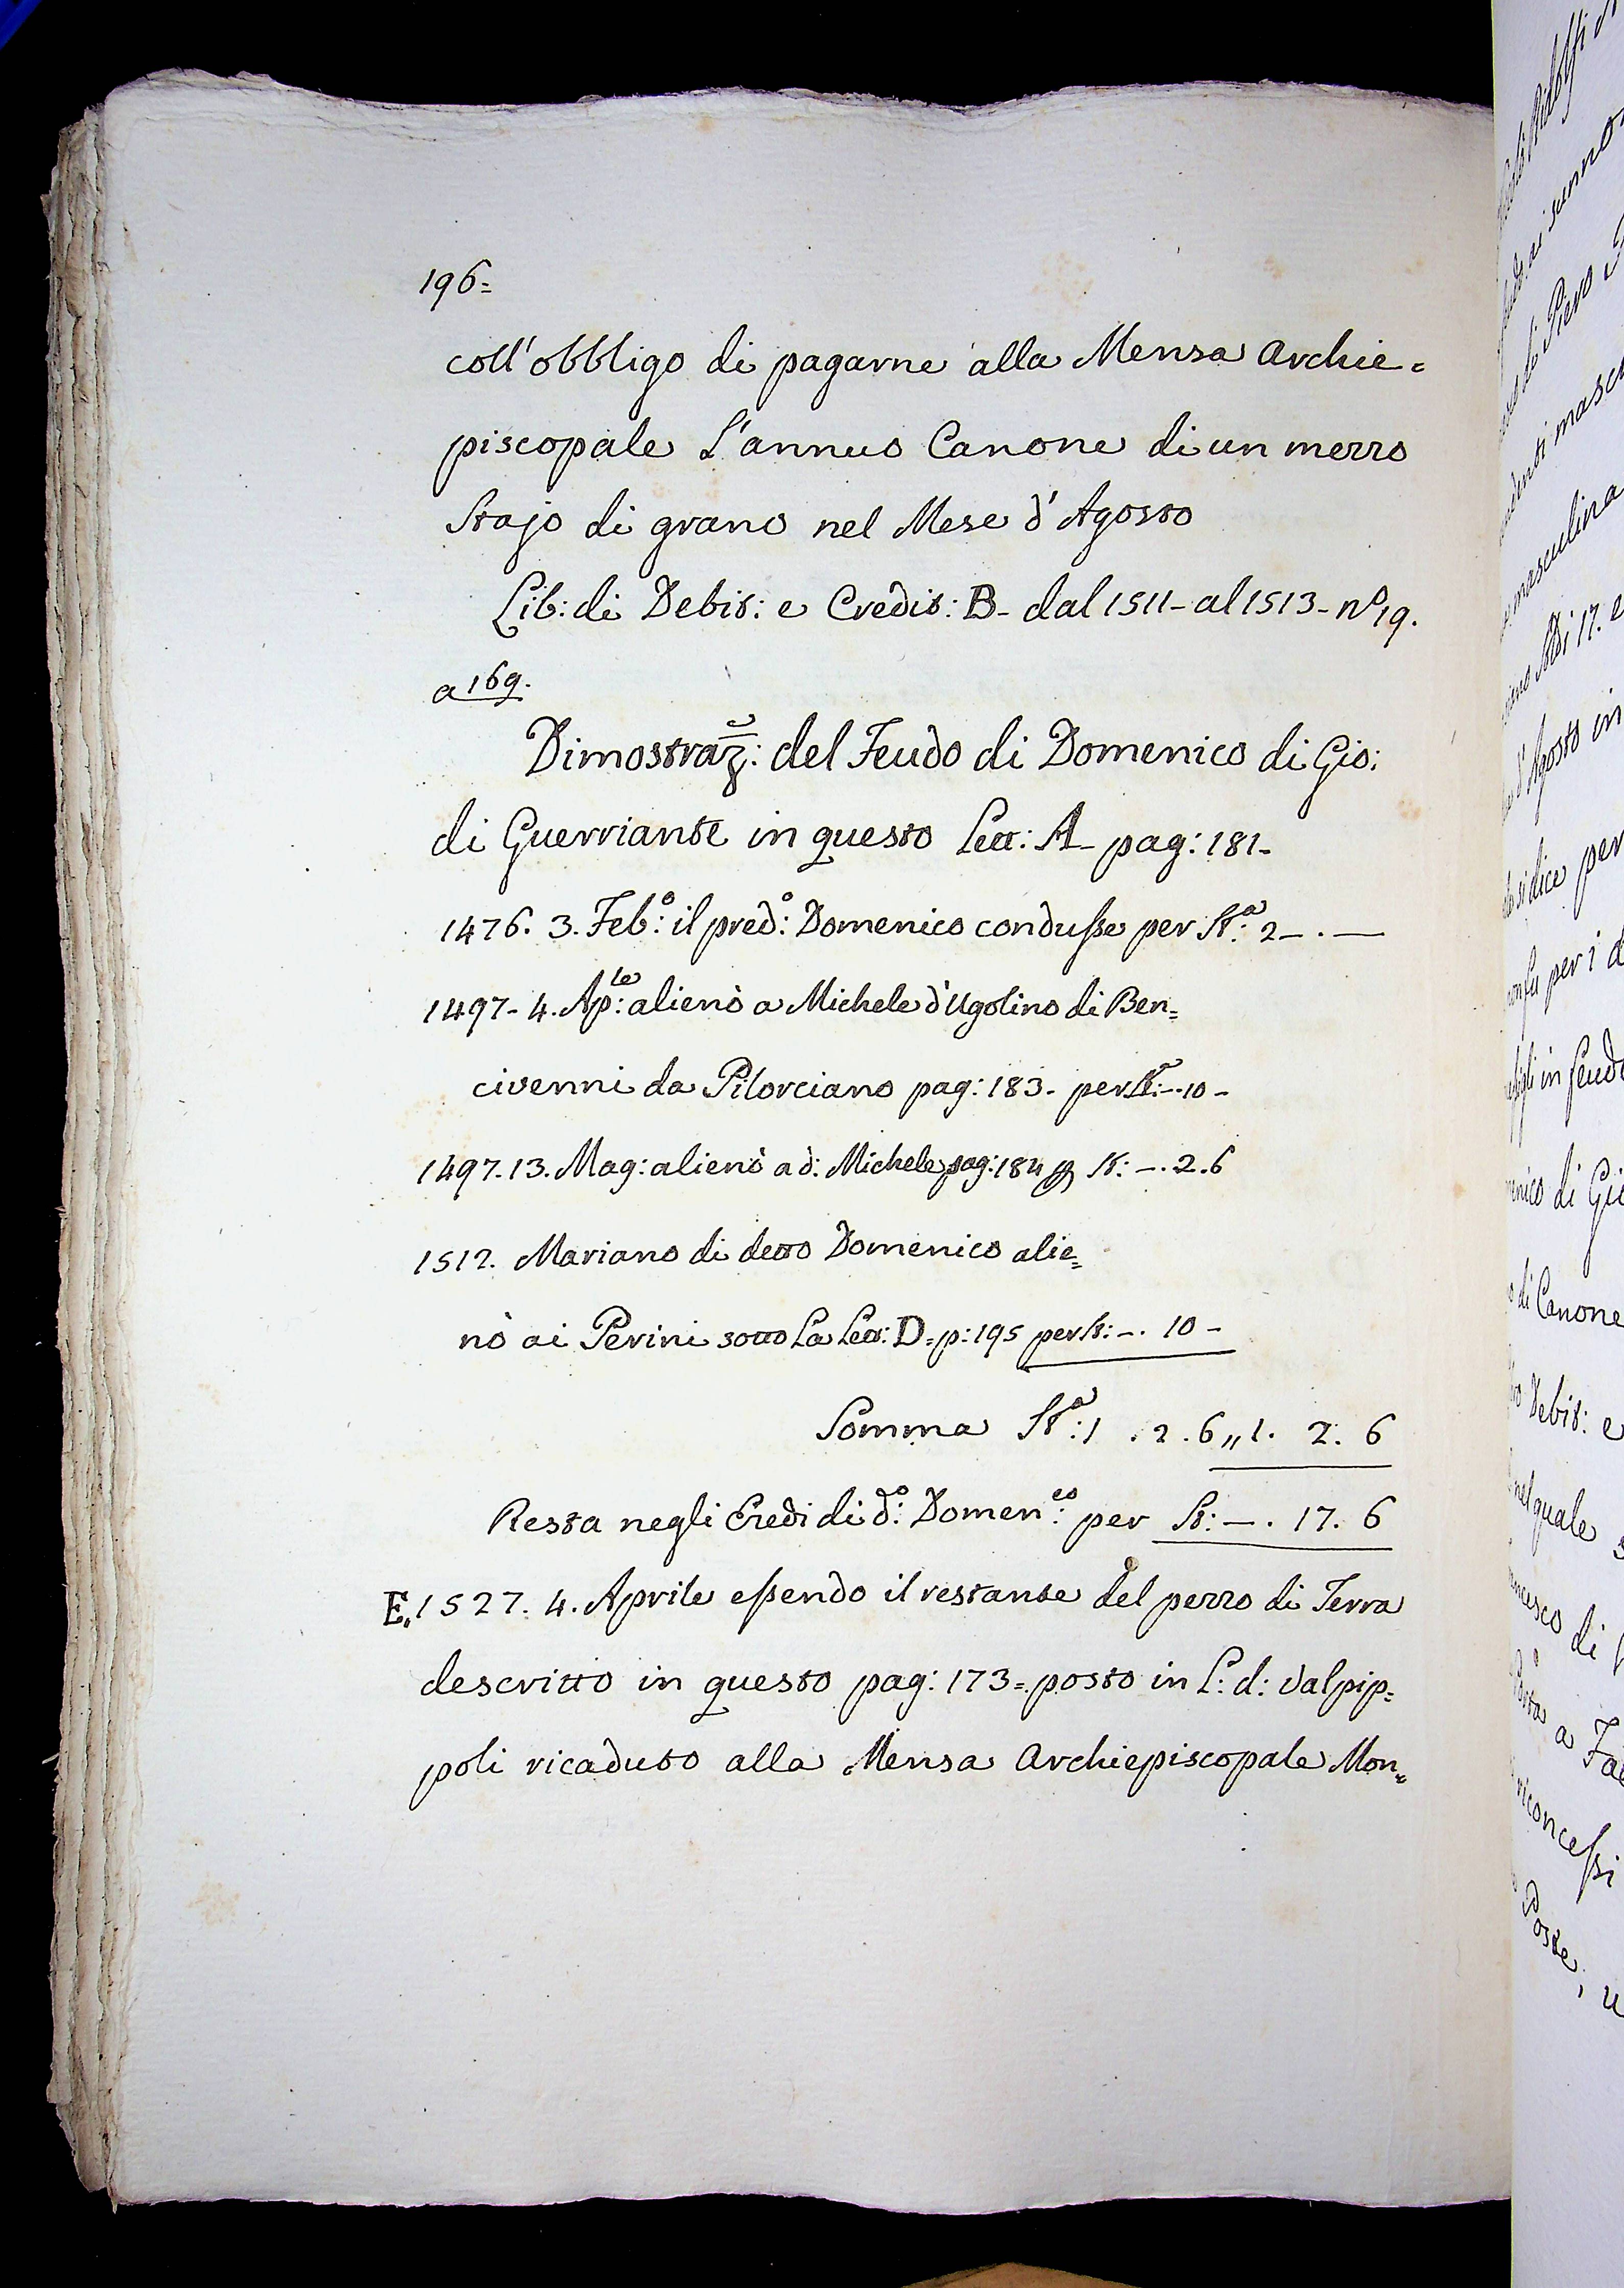 196=
coll'obbligo di pagarne alla Mensa Archie=
piscopale L'annuo Canone di un mezzo
Stajo di grano nel Mese d'Agosto
Lib: di Debit: e Credit: B- dal 1511- al 1513- nº 19.
a 169.
Dimostraz: del Feudo di Domenico di Gio:
di Guerriante in questo Lett: A- pag: 181-
1476. 3. Feb:º il pred:º Domenico condusse per St:ª 2 - . -
1497- 4. Ap:le alienò a Michele d'Ugolino di Ben=
civenni da Pilorciano pag: 183- per St:ª -. 10 -
1497. 13. Mag: alienò a d: Michele pag: 184 p St: -. 2. 6
1512. Mariano di detto Domenico alie=
nò ai Perini sotto La Lett: D= p: 195 per St: -. 10 -
Somma St:ª 1 . 2 . 6 ,, 1. 2. 6
Resta negli Eredi di d:º Domen:co per St: -. 17. 6
E. 1527. 4. Aprile essendo il restante del pezzo di Terra
descritto in questo pag: 173= posto in L: d: Valpip=
poli ricaduto alla Mensa Archiepiscopale Mon=
di Piero
masculina
17. 2
d'Agosto in
si dice per
per i d
in feudo
di Gio
di Canone
Debit: e
nel quale s
di
a
riconcessi
Poste, u